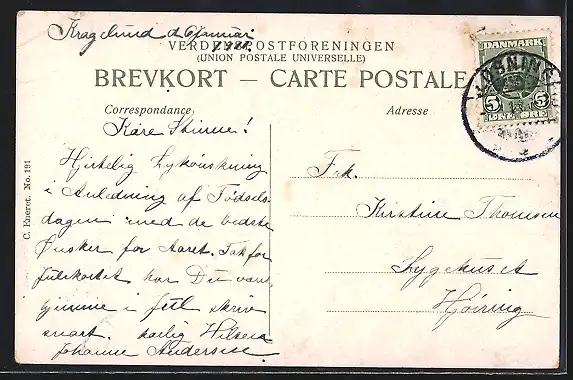 Kragelund d 6 Januar
VERDENSPOSTFORENINGEN
(UNION POSTALE UNIVERSELLE)
BREVKORT — CARTE POSTALE
Correspondance
Adresse
DANMARK
5 5
ØRE ØRE
C. Eneret. No. 191
Kære Stinne!
Hjertelig Lykønskning
i Anledning af Fødsels-
dagen med de bedste
Ønsker for Aaret. Tak for
Julekortet har Du været
hjemme i Jul skriv
snart. kærlig Hilsen
Johanne Andersen
Frk.
Kirstine Thomsen
Sygehuset
Hjøring